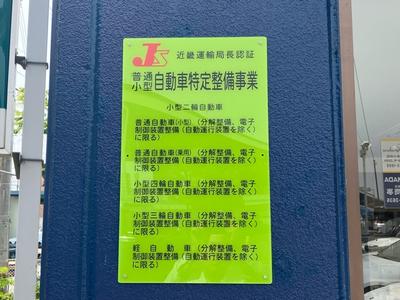 JS 近畿運輸局長認証
普通
小型 自動車特定整備事業
小型二輪自動車
普通自動車(小型)(分解整備、電子
制御装置整備(自動運行装置を除く)
に限る)
普通自動車(乗用)(分解整備、電子
制御装置整備(自動運行装置を除く)
に限る)
小型四輪自動車(分解整備、電子
制御装置整備(自動運行装置を除く)
に限る)
小型三輪自動車(分解整備、電子
制御装置整備(自動運行装置を除く)
に限る)
軽自動車(分解整備、電子
制御装置整備(自動運行装置を除く)
に限る)